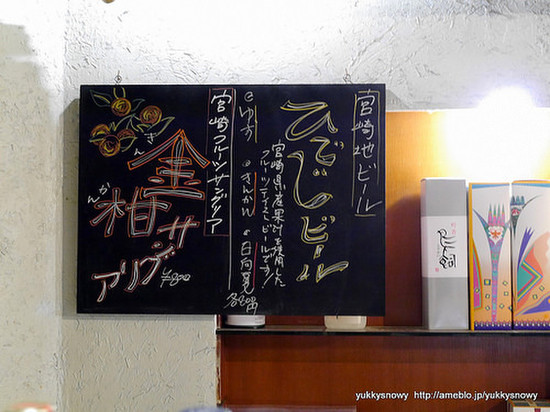 宮崎地ビール
ひでじビール
宮崎県産果汁を使用した
フルーツテイストビールです!
●ゆず ●きんかん ●日向夏
各800円
宮崎フルーツサングリア
きんかん
金柑サ
ングリア
¥800
yukkysnowy http://ameblo.jp/yukkysnowy